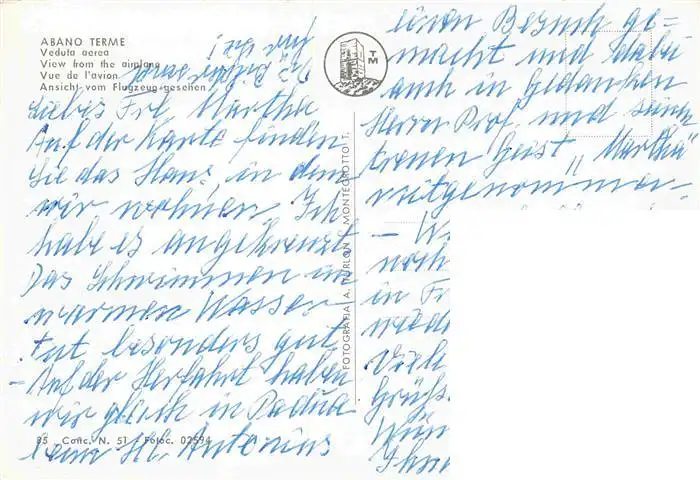 ABANO TERME
Veduta aerea
View from the airplane
Vue de l'avion
Ansicht vom Flugzeug gesehen
TM
Liebes Frl Martha
Auf der Karte finden
Sie das Haus, in dem
wir wohnen. Ich
habe es angekreuzt
Das Schwimmen im
warmen Wasser
tut besonders gut
- Auf der Herfahrt haben
wir gleich in Padua
beim Hl. Antonius
85 Conc. N. 51 Fotoc. 02594
FOTOGRAFIA A. TURLON - MONTEGROTTO T.
einen Besuch ge-
macht und dabei
auch in Gedanken
Herrn Prof. und seinen
treuen Geist „Martha"
mitgenommen
- W
noch
in Fr
wied
Viel
Grüß
Wün
Ihn